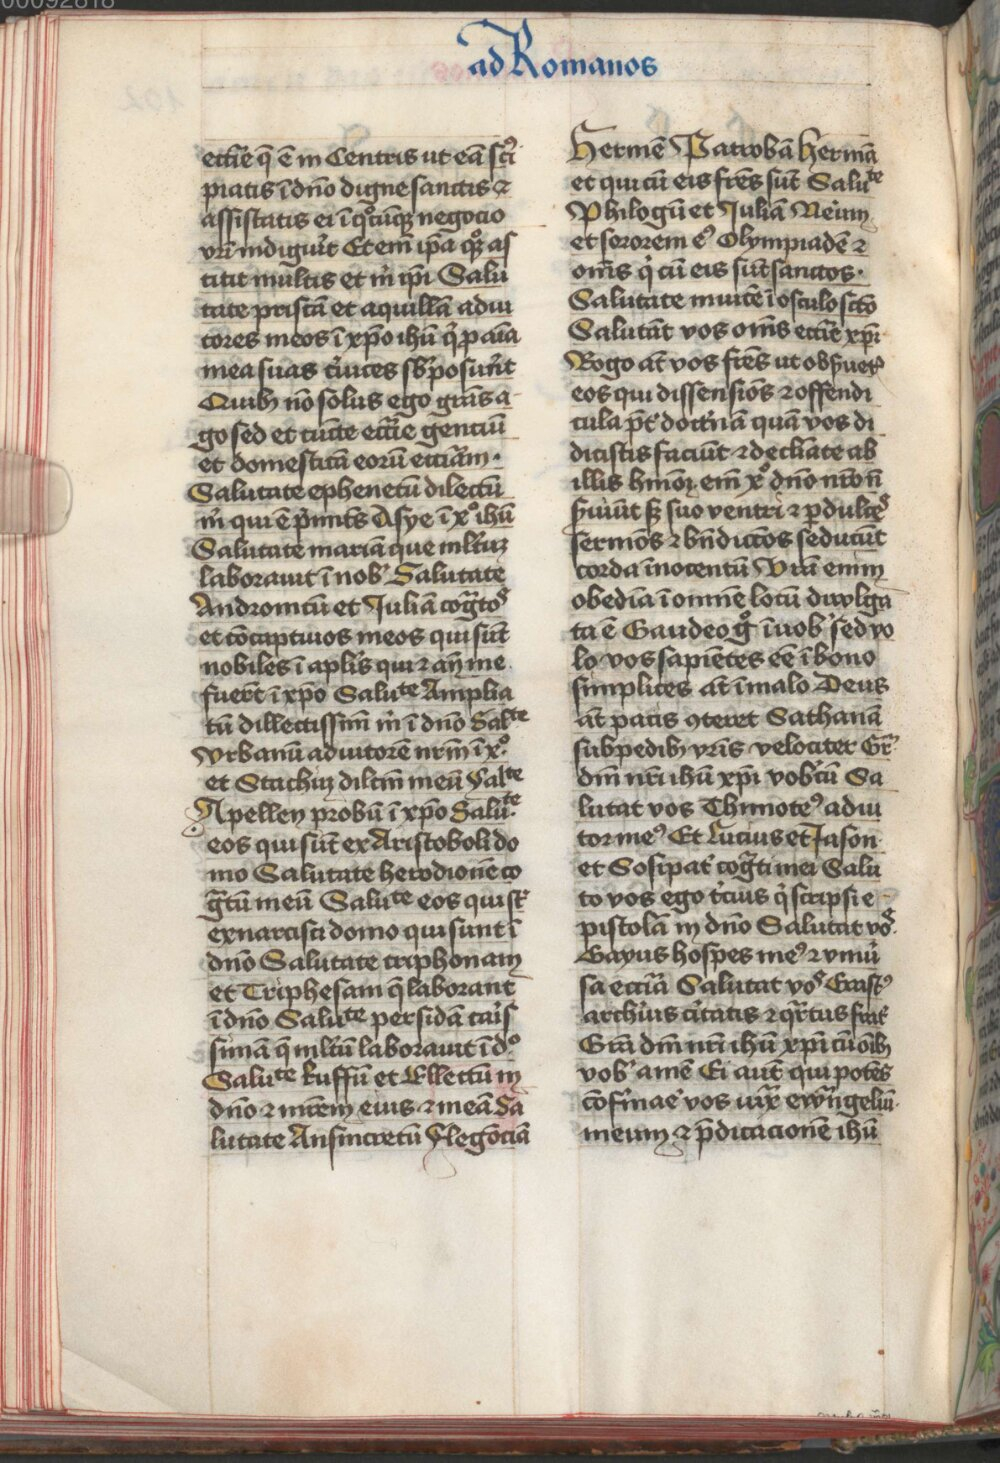 00092818
ad Romanos
ecctĩe q̃ ẽ in Centris ut eã sc̃i
piatis ĩ dño digne sanctis ⁊
assistatis ei ĩ qͦcũq̃ negocio
vr̃i indiguit̾ Etem̃ ip̃a qͦ as
titit multis et m̃ ip̃i Salu
tate priscã et aquillã adiu
tores meos ĩ xp̃o ihũ q̃ p aĩa
mea suas c̾uices sb̾posuer̃t
Quibꝫ nõ solus ego gr̃as a
go sed et cũcte ecctĩe genciũ
et domesticã eorũ ecciãm ·
Salutate ephenetũ dilectũ
m̃ qui ẽ p̾mit̾s Asye ĩ xͦ ihũ
Salutate mariã que ml̃tuꝫ
laborauit ĩ nob̾ Salutate
Andronicũ et Juliã cog̃tos̾
et cõcaptiuos meos qui sũt
nobiles ĩ apl̾is qui ⁊ añ me
fuer̃t ĩ xp̃o Saluᵗᵉ Amplia
tũ dillectissim̃ m̃ ĩ dño Salᵗᵉ
Vrbanũ adiutorẽ nr̃m ĩ xͦ·
et Stachiꝫ dilc̃m meũ Salᵗᵉ
Apellen probũ ĩ xp̃o Saluᵗᵉ
eos qui sũt ex Aristoboli do
mo Salutate herodionẽ co
g̃tũ meũ Saluᵗᵉ eos qui st̾
ex narcisci domo qui sunt ĩ
dño Salutate triphonam
et Triphesam q̃ laborant
ĩ dño Saluᵗᵉ persidã cari̾s
simã q̃ ml̃tũ laborauit ĩ dͦ·
Saluᵗᵉ Ruffũ et Ellectũ in
dño ⁊ mr̃em eius ⁊ meã Sa
lutate Ansincretũ Flegõciã
Hermẽ Patrobã hermã
et qui cũ eis fr̃es sũt Saluᵗᵉ
Philogũ et Juliã Neium
et sororem eꝰ Olympiadẽ ⁊
om̃s q̾ cũ eis sũt sanctos ·
Salutate inuicẽ ĩ osculo sc̃o
Salutãt vos om̃s ecctĩe xp̃i
Rogo at̃ vos fr̃es ut obs̾uet̾
eos qui dissensiõs ⁊ offendi
cula pt̾ doct̾nã quã vos di
dicistis faciũt ⁊ decliate ab
illis hm̃oi em̃ xͦ dño nr̃o ñ
s̾uiũt sꝫ suo ventri ⁊ p dulces̾
sermõs ⁊ bñdictõs seducũt
corda ĩnocentũ Vr̃a enim
obediã ĩ omnẽ locũ diuulga
ta ẽ Gaudeo gͦ ĩ uob̾ sed vo
lo vos sapiẽtes eẽ ĩ bono
simplices at̃ ĩ malo Deus
at̃ pacis ꝯteret Sathanã
sub pedibꝫ vr̃is velociter Gr̃a
dm̃ nr̃i ihũ xp̃i vob̾cũ Sa
lutat vos Thimoteꝰ adiu
tor meꝰ Et Lucius et Jason
et Sosipat̾ cog̃ti mei Salu
to vos ego t̾cius q̾ scripsi e
pistolã in dño Salutat vos̾
Gayus hospes meꝰ ⁊ vniu̾
sa ecctĩa Salutat vos̾ Erastꝰ
archi̾us ci̾tatis ⁊ qr̃tus frat̾
Gr̃a dm̃ nr̃i ihũ xp̃i cũ oĩbꝫ
vob̾ amẽ Ei aut̃ qui potẽs
cõfirmae̾ vos iux̃ ewãngeliũ
meum ⁊ p̃dicacionẽ ihũ